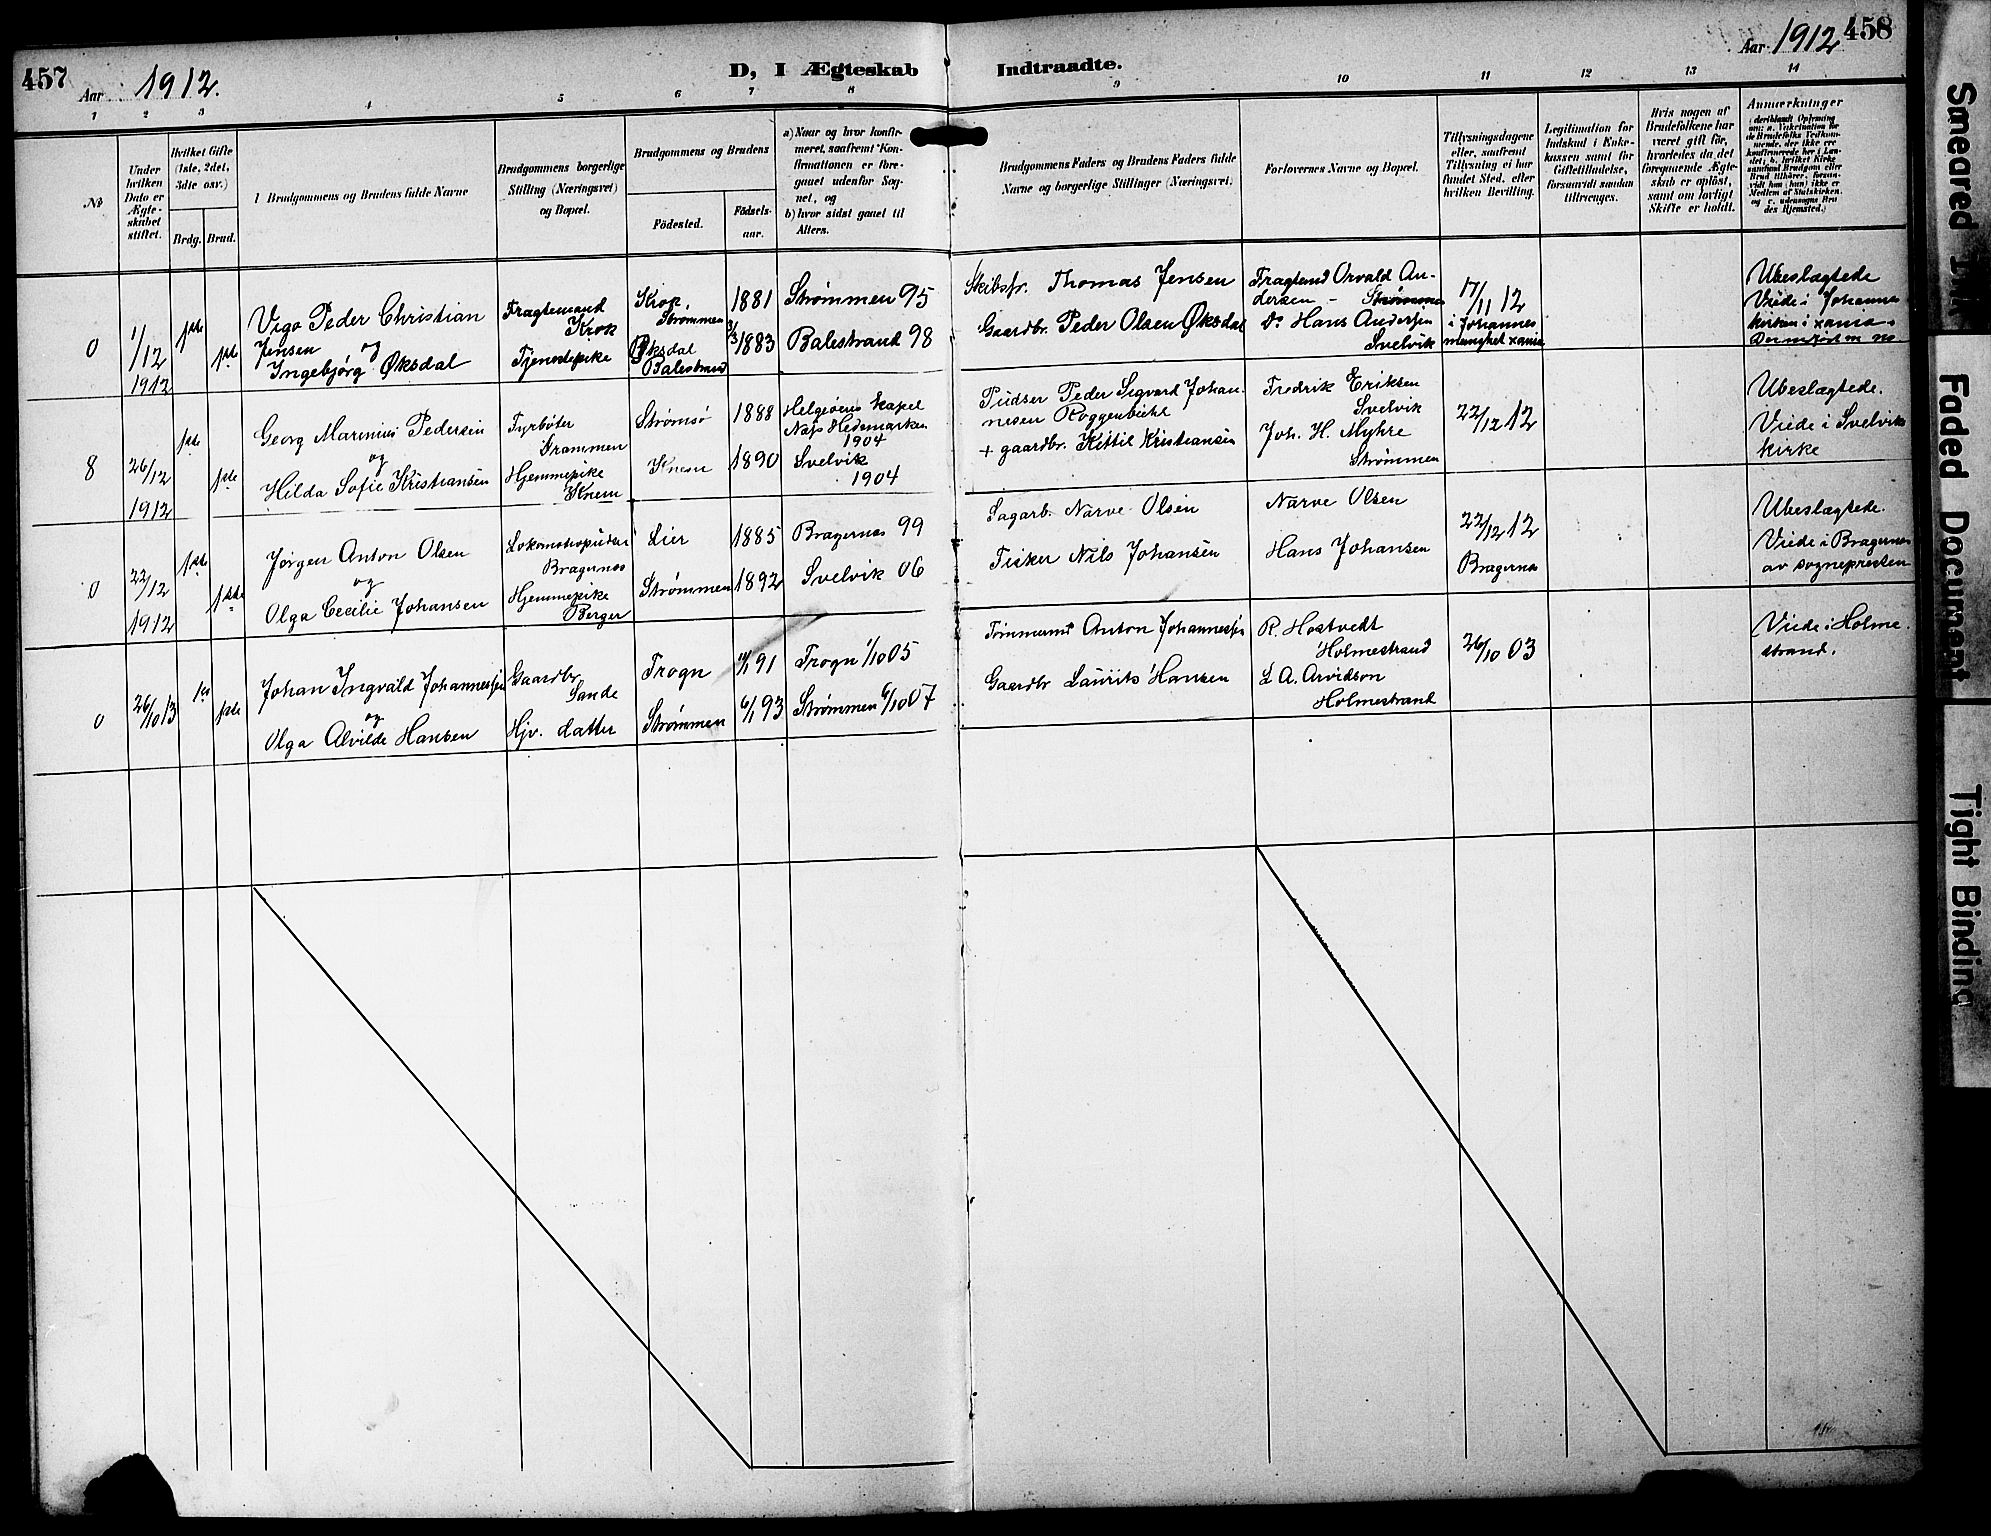 457
Aar 1912.
D, I Ægteskab Indtraadte.
Aar 1912 458
1 2 3 4 5 6 7 8 9 10 11 12 13 14
No
Under hvilken Dato er Ægteskabet stiftet.
Hvilket Gifte (1ste, 2det, 3die osv.)
Brdg. Brud.
Brudgommens og Brudens fulde Navne
Brudgommens borgerlige Stilling (Næringsvei) og Bopæl.
Brudgommens og Brudens
Födested.
Födsels-aar.
a) Naar og hvor konfir-
meret, saafremt Kon-
firmationen er fore-
gaaet udenfor Sog-
net, og
b) hvor sidst gaaet til
Alters.
Brudgommens Faders og Brudens Faders fulde
Navne og borgerlige Stillinger (Næringsvei).
Forlovernes Navne og Bopæl.
Tillysningsdagene
eller, saafremt
Tillysning ei har
fundet Sted, efter
hvilken Bevilling.
Legitimation for
Indskud i Enke-
kassen samt for
Giftetilladelse,
forsaavidt saadan
tiltrænges.
Hvis nogen af
Brudefolkene har
været gift før,
hvorledes da det
foregaaende Ægte-
skab er opløst,
samt om lovligt
Skifte er holdt.
Anmærkninger
0 1/12 1912 1ste 1ste
Vigo Peder Christian
Jensen og
Ingebjørg Øksdal
Fragtemand
Krok
Tjenestepike
Krok,
Strømmen
Øksdal
Balestrand
1881
3/3 1883
Strømmen 95
Balestrand 98
Skibsfr. Thomas Jensen
Gaardbr. Peder Olsen Øksdal
Fragtemd Orvald An-
dersen - Strømmen
Do Hans Andersen
Svelvik
17/11 12
i Johannes
menighet xania
Ubeslægtede
Viede i Johannes
kirken i xania
8 26/12 1912 1ste 1ste
Georg Marinius Pedersen
og
Hilda Sofie Kristiansen
Fyrbøter
Drammen
Hjemmepike
Knem
Strømsø
Knem
1888
1890
Helgøens kapel
Næs Hedemarken
1904
Svelvik
1904
Pudser Peder Sigvard Johan-
nesen Roggenbühl
+ gaardbr. Kittil Kristiansen
Fredrik Eriksen
Svelvik
Joh. H. Myhre
Strømmen
22/12 12
Ubeslægtede.
Viede i Svelvik
kirke
0 22/12 1912 1ste 1ste
Jørgen Anton Olsen
og
Olga Cecilie Johansen
Lokomotivpudser
Bragernes
Hjemmepike
Berger
Lier
Strømmen
1885
1892
Bragernes 99
Svelvik 06
Sagarb. Narve Olsen
Fisker Nils Johansen
Narve Olsen
Hans Johansen
22/12 12
Bragernes
Ubeslægtede.
Viede i Bragernes
av sognepresten
0 26/10 13 1ste 1ste
Johan Ingvald Johannessen
og
Olga Alvilde Hansen
Gaardbr.
Sande
Hjv. datter
Frogn
Strømmen
91
6/1 93
Frogn 1/10 05
Strømmen 6/10 07
Tømmermd Anton Johannessen
Gaardbr Laurits Hansen
R. Hostvedt
Holmestrand
L A. Arvidson
Holmestrand
26/10 03
Viede i Holme-
strand.
Smeared Ink
Faded Document
Tight Binding